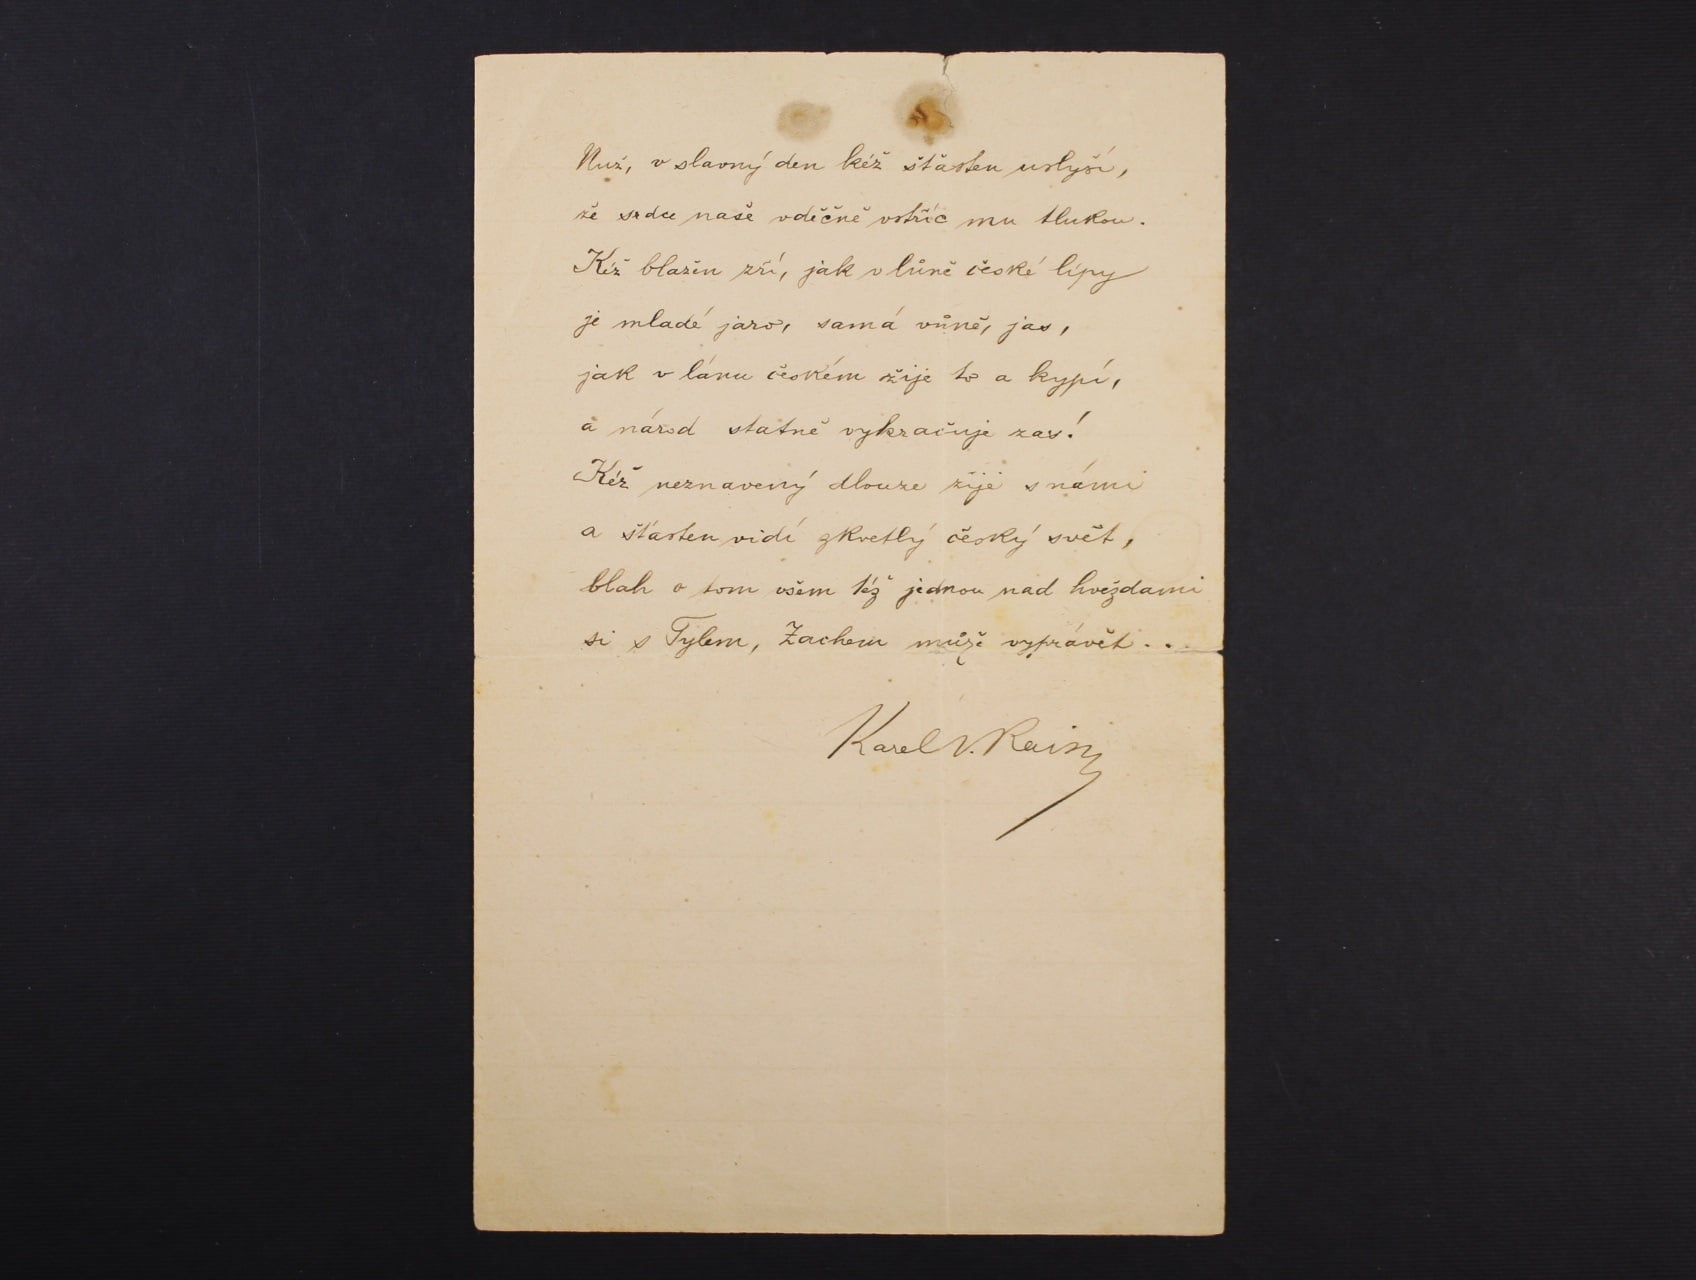 Nuž, v slavný den kéž šťasten uslyší,
že srdce naše vděčně vstříc mu tlukou.
Kéž blažen zří, jak v lůně české lípy
je mladé jaro, samá vůně, jas,
jak v lánu českém žije to a kypí,
a národ statně vykračuje zas!
Kéž neznavený dlouze žije s námi
a šťasten vidí zkvetlý český svět,
blah o tom všem též jednou nad hvězdami
si s Tylem, Zachem může vyprávět...
Karel V. Rais